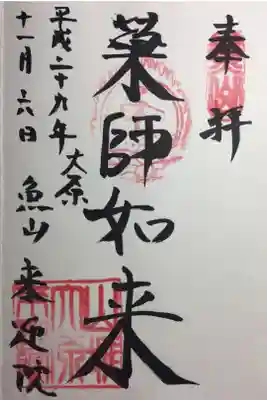 奉拝
薬師如来
大原
魚山 来迎院
平成二十九年
十一月六日